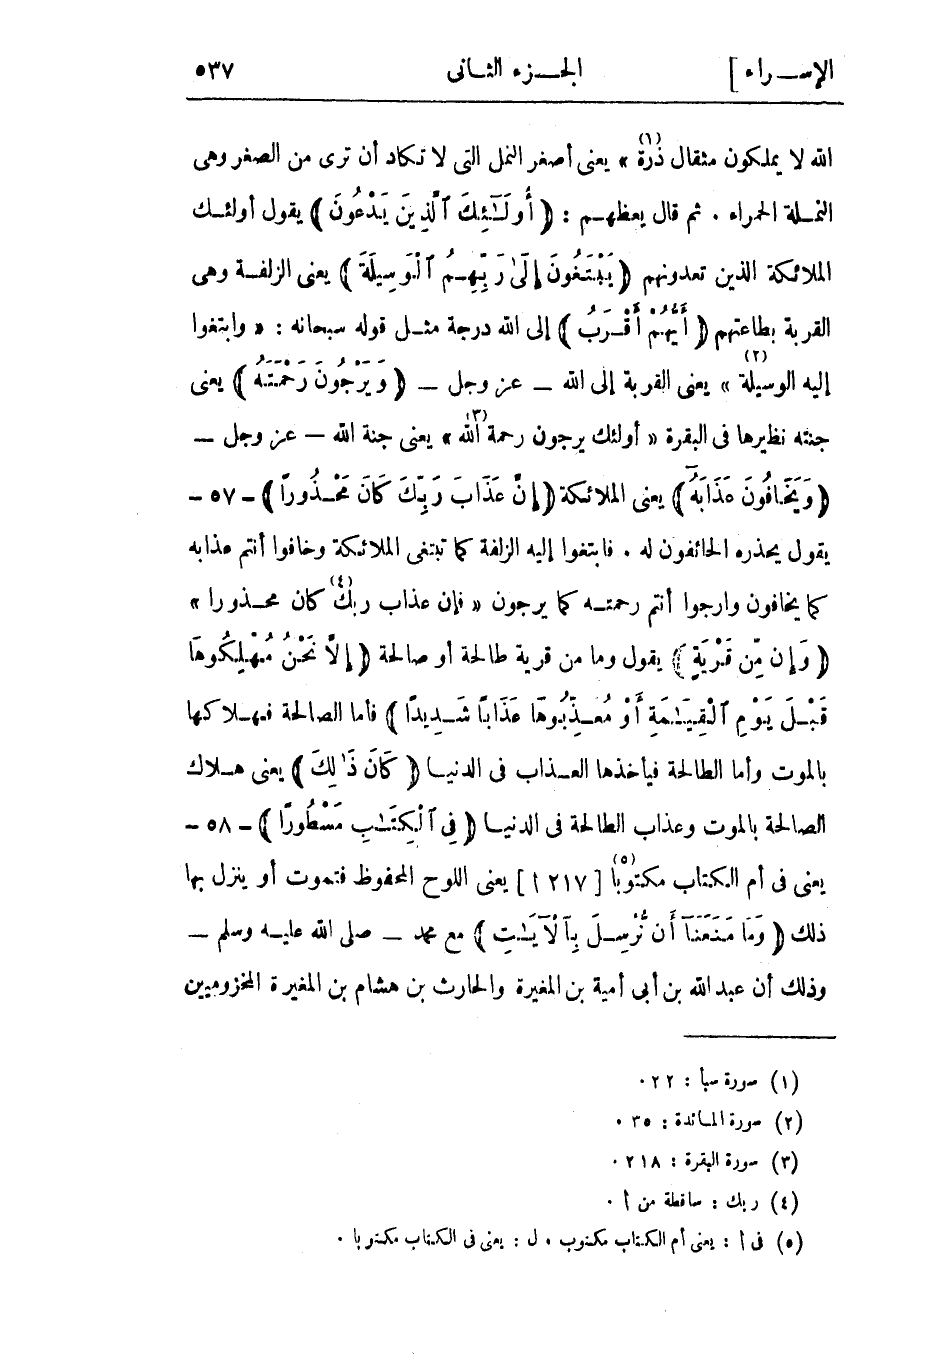 الإسراء] الجزء الثانى ٥٣٧
الله لا يملكون مثقال ذرة (١) » يعنى أصغر النمل التى لا تكاد أن ترى من الصغر وهى
النملة الحمراء . ثم قال يعظهم : ﴿ أُولَـٰٓئِكَ ٱلَّذِينَ يَدْعُونَ ﴾ يقول أولئك
الملائكة الذين تعدونهم ﴿ يَبْتَغُونَ إِلَىٰ رَبِّهِمُ ٱلْوَسِيلَةَ ﴾ يعنى الزلفة وهى
القربة بطاعتهم ﴿ أَيُّهُمْ أَقْرَبُ ﴾ إلى الله درجة مثل قوله سبحانه : « وابتغوا
إليه الوسيلة (٢) » يعنى القربة إلى الله – عز وجل – ﴿ وَيَرْجُونَ رَحْمَتَهُ ﴾ يعنى
جنته نظيرها فى البقرة « أولئك يرجون رحمة الله (٣) » يعنى جنة الله – عز وجل –
﴿ وَيَخَافُونَ عَذَابَهُٓ ﴾ يعنى الملائكة ﴿ إِنَّ عَذَابَ رَبِّكَ كَانَ مَحْذُورًا ﴾ – ٥٧ –
يقول يحذره الخائفون له . فابتغوا إليه الزلفة كما تبتغى الملائكة وخافوا أنتم عذابه
كما يخافون وارجوا أنتم رحمته كما يرجون « فإن عذاب ربك (٤) كان محذورا »
﴿ وَإِن مِّن قَرْيَةٍ ﴾ يقول وما من قرية طالحة أو صالحة ﴿ إِلَّا نَحْنُ مُهْلِكُوهَا
قَبْلَ يَوْمِ ٱلْقِيَـٰمَةِ أَوْ مُعَذِّبُوهَا عَذَابًا شَدِيدًا ﴾ فأما الصالحة فهلاكها
بالموت وأما الطالحة فيأخذها العذاب فى الدنيا ﴿ كَانَ ذَٰلِكَ ﴾ يعنى هلاك
الصالحة بالموت وعذاب الطالحة فى الدنيا ﴿ فِي ٱلْكِتَـٰبِ مَسْطُورًا ﴾ – ٥٨ –
يعنى فى أم الكتاب مكتوبا (٥) [ ٢١٧ أ ] يعنى اللوح المحفوظ فتموت أو ينزل بها
ذلك ﴿ وَمَا مَنَعَنَآ أَن نُّرْسِلَ بِٱلْأَيَـٰتِ ﴾ مع محمد – صلى الله عليه وسلم –
وذلك أن عبد الله بن أبى أمية بن المغيرة والحارث بن هشام بن المغيرة المخزوميين
(١) سورة سبأ : ٢٢ .
(٢) سورة المائدة : ٣٥ .
(٣) سورة البقرة : ٢١٨ .
(٤) ربك : ساقطة من أ .
(٥) فى أ : يعنى أم الكتاب مكتوب ، ل : يعنى فى الكتاب مكتوبا .